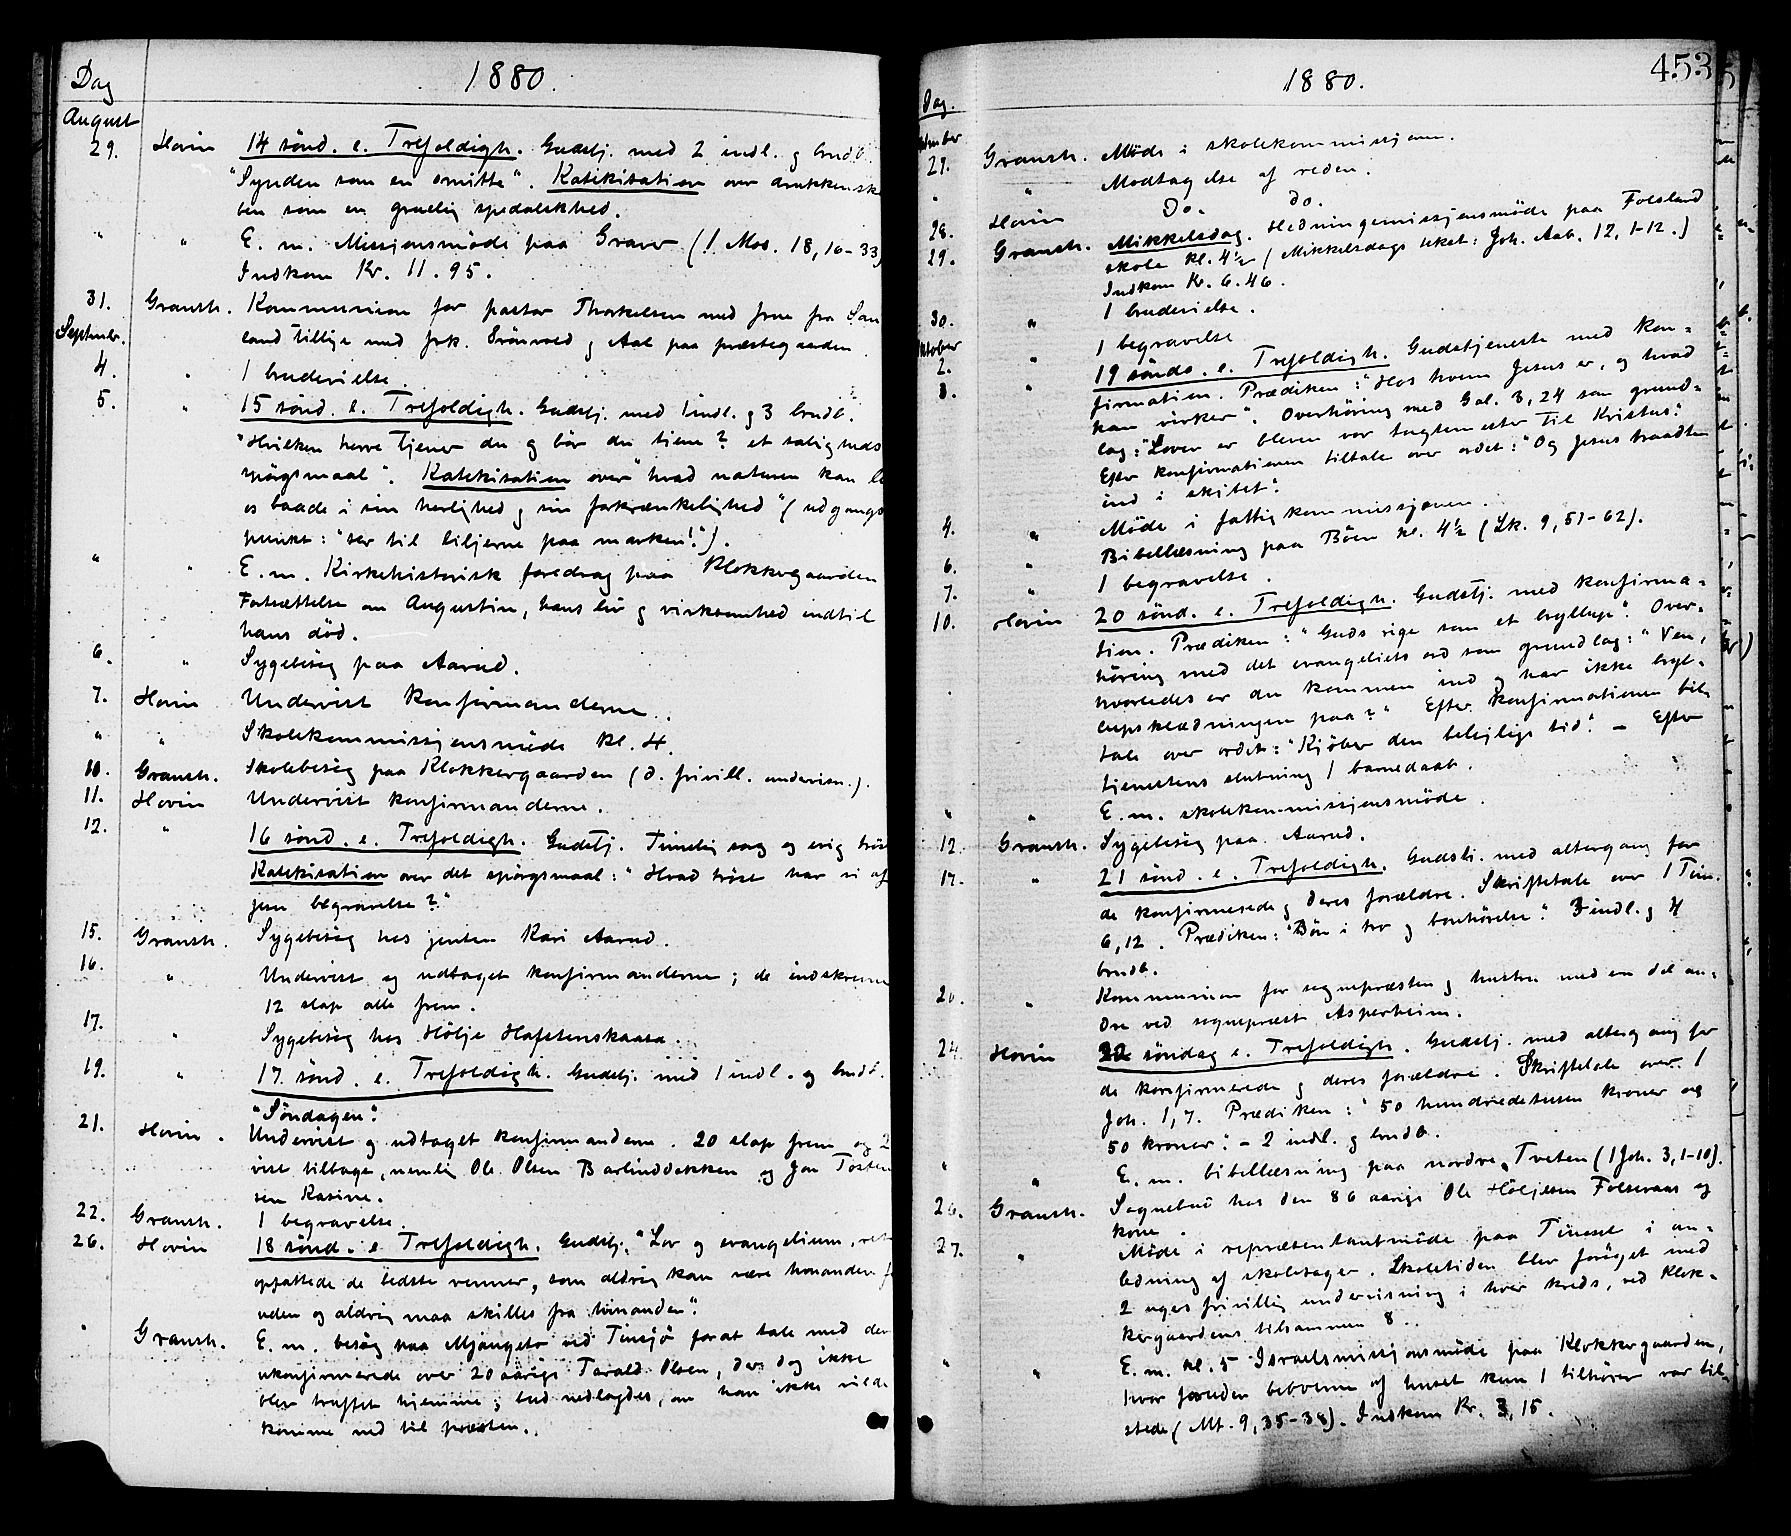 Dag
1880.
August
29. Hovin 14 sönd. e. Trefoldigh. Gudstj. med 2 indl. og brudb.
"Synden som en smitte". Katekisation over drukkenska
ben som en gruelig spedalskhed.
" " E. m. Missjonsmöde paa Graver (1. Mos. 18, 16-33)
Indkom Kr. 11.95.
31. Gransh. Kommunion for pastor Thorkelsen med frue fra San
September. land tillige med frk. Grönvold og Aal paa præstegaarden
4. " 1 brudevielse.
5. " 15 sönd. e. Trefoldigh. Gudstj. med 1 indl. og 3 brudb.
"Hvilken herre tjener du og bör du tiene? et saligheds
spörgsmaal". Katekisation over "hvad naturen kan læ
os baade i sin herlighed og sin forkrænkelighed" (udgangs
punkt: "ser til liljerne paa marken!").
" " E. m. Kirkehistorisk foredrag paa Klokkergaarden
Fortsættelse om Augustin, hans liv og virksomhed indtil
hans död.
6. " Sygebesög paa Aarud.
7. Hovin Undervist konfirmanderne.
" " Skolekommissjonsmöde kl. 4.
10. Gransh. Skolebesög paa Klokkergaarden (d. frivill. undervisn.).
11. Hovin Undervist konfirmanderne.
12. " 16 sönd. e. Trefoldigh. Gudstj. Timelig sorg og evig tröst
Katekisation over det spörgsmaal: "Hvad tröst har vi af
jesu begravelse?"
15. Gransh. Sygebesög hos jenten Kari Aarud.
16. " Undervist og udtaget konfirmanderne; de indskrevne
12 slap alle frem.
17. " Sygebesög hos Hölje Hafstenskaasa.
19. " 17. sönd. e. Trefoldigh. Gudstj. med 1 indl. og brudb.
"Söndagen".
21. Hovin. Undervist og udtaget konfirmanderne. 20 slap frem og 2
vist tilbage, nemlig Ole Olsen Barlinddokken og Jon Tosten
sen Rasine.
22. Gransh. 1 begravelse.
26. Hovin 18 sönd. e. Trefoldigh. Gudstj. "Lov og evangelium, ret
opfattede de bedste venner, som aldrig kan være hinanden f
uden og aldrig maa skilles fra hinanden".
" Gransh. E. m. besög paa Mjangeto ved Tinsjö forat tale med den
ukonfirmerede over 20 aarige Tarald Olsen, der dog ikke
blev truffet hjemme; bud nedlagdes, om han ikke vilde
komme ned til præsten.
453
Dag.
1880.
September
27. Gransh. Möde i skolekommissjonen.
" " Modtagelse af reden.
28. Hovin Do. do.
29. Gransh. Mikkelsdag. Hedningemissjonsmöde paa Folsland
skole kl. 4½ (Mikkelsdags tekst: Joh. Aab. 12, 1-12.)
Indkom Kr. 6.46.
30. " 1 brudevielse.
Oktober
2. " 1 begravelse
3. " 19 sönd. e. Trefoldigh. Gudstjeneste med kon-
firmation. Prædiken: "Hos hvem Jesus er, og hvad
han virker". Overhöring med Gal. 3, 24 som grund-
lag: "Loven er bleven vor tugtemester til Kristus".
Efter konfirmationen tiltale over ordet: "Og Jesus traadte
ind i skibet".
4. " Möde i fattigkommissjonen.
6. " Bibellæsning paa Böen kl. 4½ (Lk. 9, 51-62).
7. " 1 begravelse.
10. Hovin 20 sönd. e. Trefoldigh. Gudstj. med konfirma-
tion. Prædiken: "Guds rige som et bryllup". Over-
höring med det evangeliets ord som grundlag: "Ven,
hvorledes er du kommen ind og har ikke bryl-
lupsklædningen paa?" Efter konfirmationen til-
tale over ordet: "Kjöber den beleilige tid". – Efter
tjenestens slutning 1 barnedaab.
" " E. m. skolekommissjonsmöde.
12. Gransh. Sygebesög paa Aarud.
17. " 21 sönd. e. Trefoldigh. Gudstj. med altergang for
de konfirmerede og deres forældre. Skriftetale over 1 Tim.
6, 12. Prædiken: "Bön i tro og bönhörelse". 3 indl. og 4
brudb.
20. " Kommunion for sognepræsten og hustru med en del an-
dre ved sognepræst Asperheim.
24. Hovin 22 söndag e. Trefoldigh. Gudstj. med altergang for
de konfirmerede og deres forældre. Skriftetale over 1
Joh. 1, 7. Prædiken: "50 hundredetusen kroner og
50 kroner". – 2 indl. og brudb.
" " E. m. bibellæsning paa nordre Tveten (1 Joh. 3, 1-10).
26. Gransh. Sognebud hos den 86 aarige Ole Höljesen Folseraas og
kone.
27. " Möde i repræsentantmöde paa Tineset i an-
ledning af skolesager. Skoletiden blev foröget med
2 uges frivillig undervisning i hver kreds, ved Klok-
kergaardens tilsammen 8.
" " E. m. kl. 5 Israelsmissjonsmöde paa Klokkergaarden,
hvor foruden beboerne af huset kun 1 tilhörer var til-
stede (Mt. 9, 35-38). Indkom Kr. 3,15.